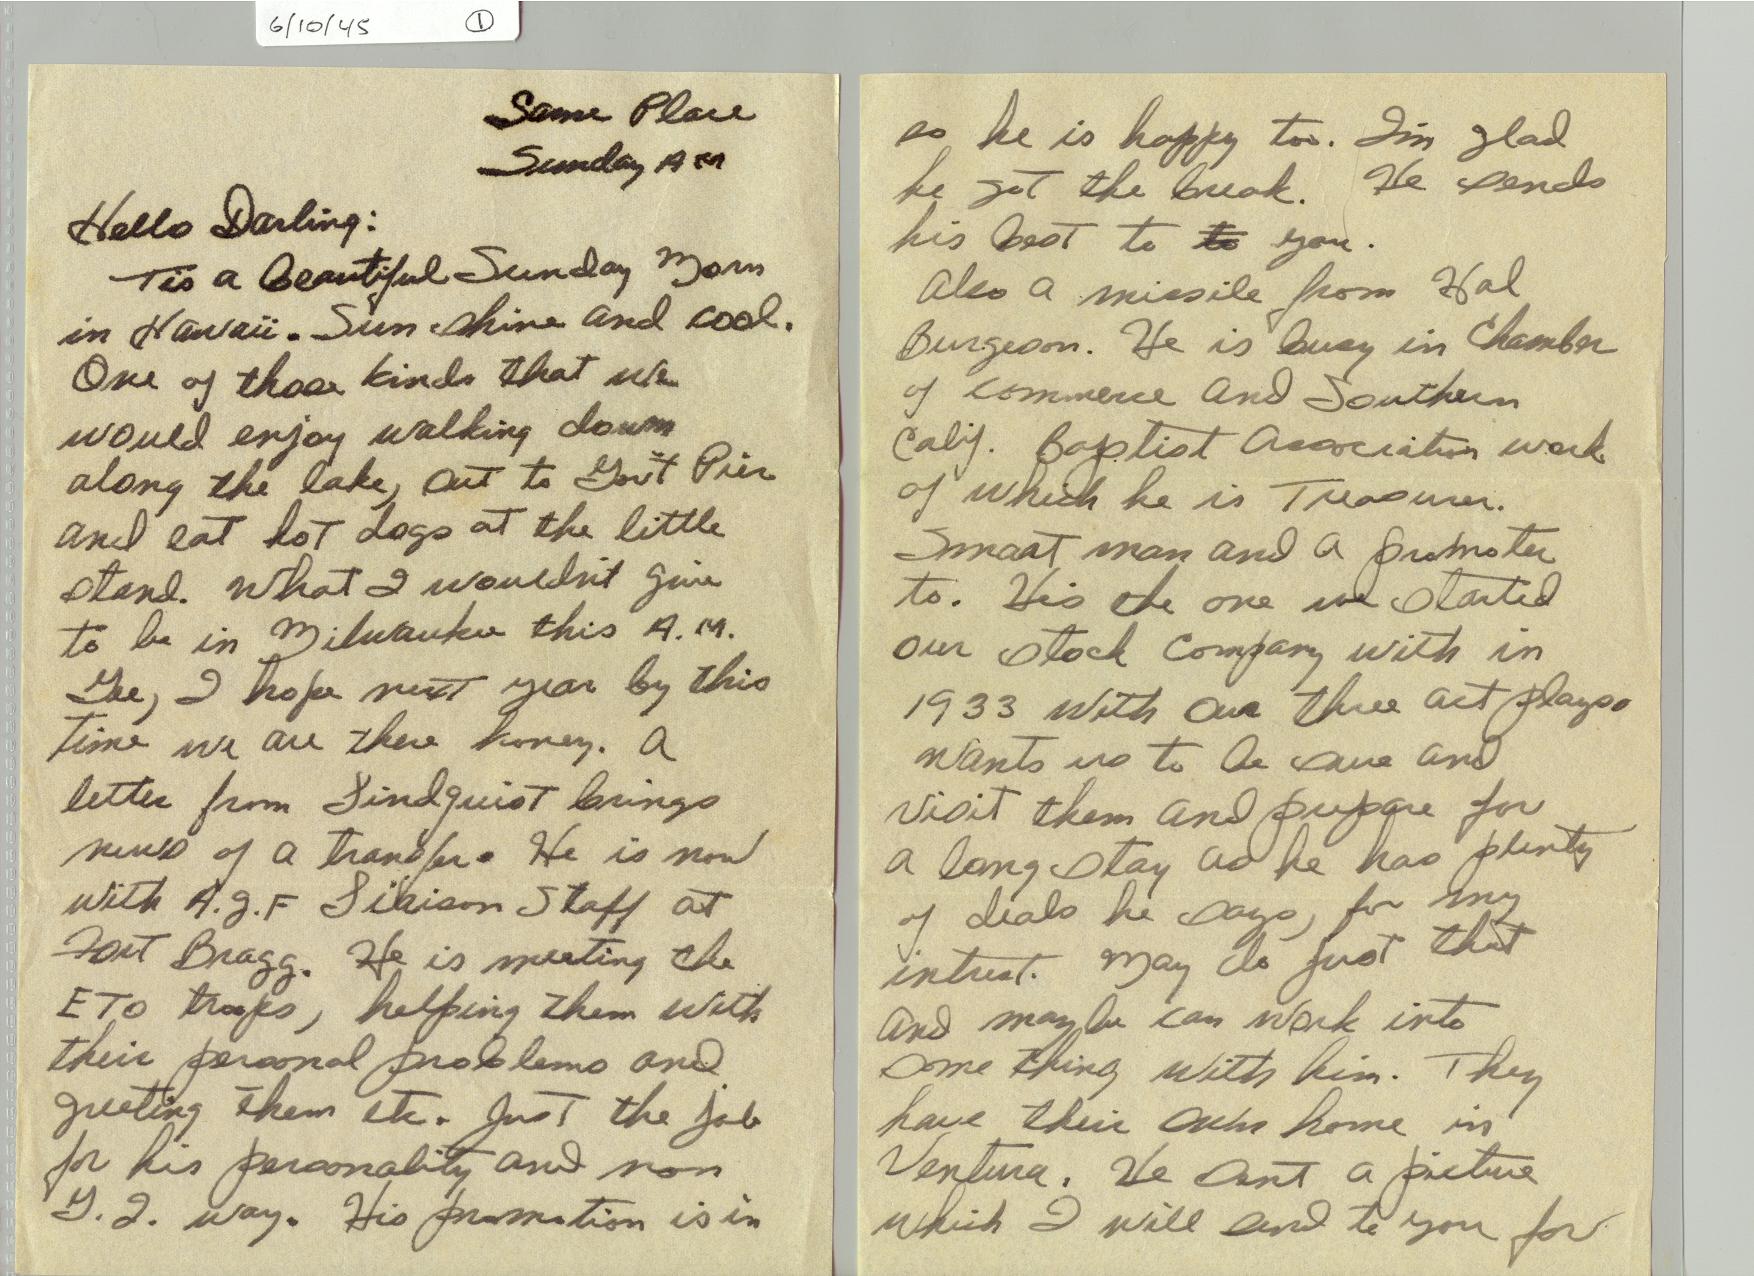 6/10/45 ①
Same Place
Sunday A M
Hello Darling:
Tis a beautiful Sunday Morn
in Hawaii. Sun shine and cool.
One of those kinds that we
would enjoy walking down
along the lake, out to Gov't Pier
and eat hot dogs at the little
stand. What I wouldn't give
to be in Milwaukee this A.M.
Gee, I hope next year by this
time we are there honey. A
letter from Lindquist brings
news of a transfer. He is now
with A.G.F Liaison Staff at
Fort Bragg. He is meeting the
ETO troops, helping them with
their personal problems and
greeting them etc. Just the job
for his personality and non
G.I. way. His promotion is in
so he is happy too. I'm glad
he got the break. He sends
his best to to you.
Also a missile from Hal
Burgeson. He is busy in Chamber
of commerce and Southern
Calif. Baptist Association work
of which he is Treasurer.
Smart man and a promoter
to. His the one we started
our stock company with in
1933 with our three act plays.
Wants us to be sure and
visit them and prepare for
a long stay as he has plenty
of deals he says, for my
intrest. May do just that
and maybe can work into
some thing with him. They
have their own home in
Ventura. He sent a picture
which I will send to you for